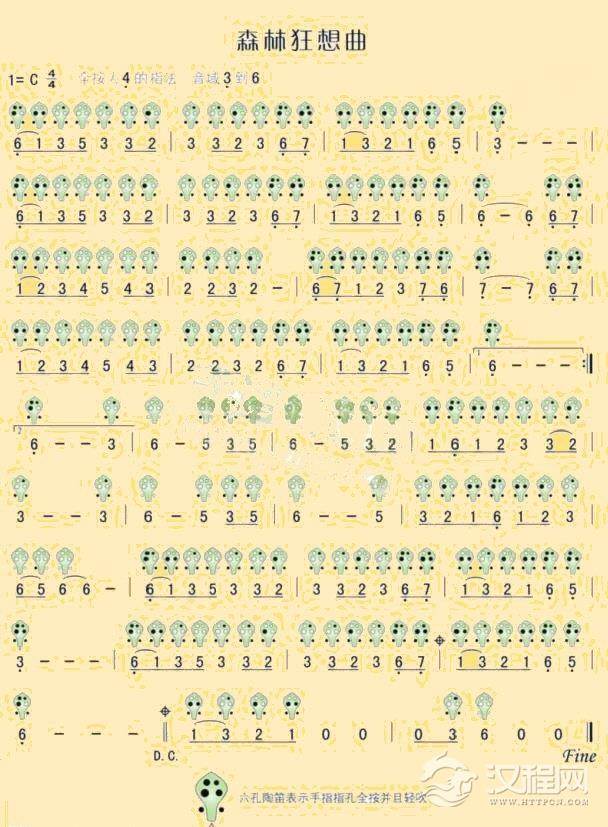 森林狂想曲
1= C 4/4 全按人4的指法 音域3到6
6 1 3 5 3 3 2 | 3 3 2 3 6 7 | 1 3 2 1 6 5 | 3 - - - |
6 1 3 5 3 3 2 | 3 3 2 3 6 7 | 1 3 2 1 6 5 | 6 - 6 6 7 |
1 2 3 4 5 4 3 | 2 2 3 2 - | 6 7 1 2 3 7 6 | 7 - 7 6 7 |
1 2 3 4 5 4 3 | 2 2 3 2 6 7 | 1 3 2 1 6 5 | 6 - - - :|
6 - - 3 | 6 - 5 3 5 | 6 - 5 3 2 | 1 6 1 2 3 3 2 |
3 - - 3 | 6 - 5 3 5 | 6 - - 5 | 3 2 1 6 1 2 3 |
6 5 6 6 - | 6 1 3 5 3 3 2 | 3 3 2 3 6 7 | 1 3 2 1 6 5 |
3 - - - | 6 1 3 5 3 3 2 | 3 3 2 3 6 7 | 1 3 2 1 6 5 |
6 - - - || 1 3 2 1 0 0 | 0 3 6 0 0 ||
D.C. Fine
六孔陶笛表示手指指孔全按并且轻吹
汉程网
WWW.HTTPCN.COM